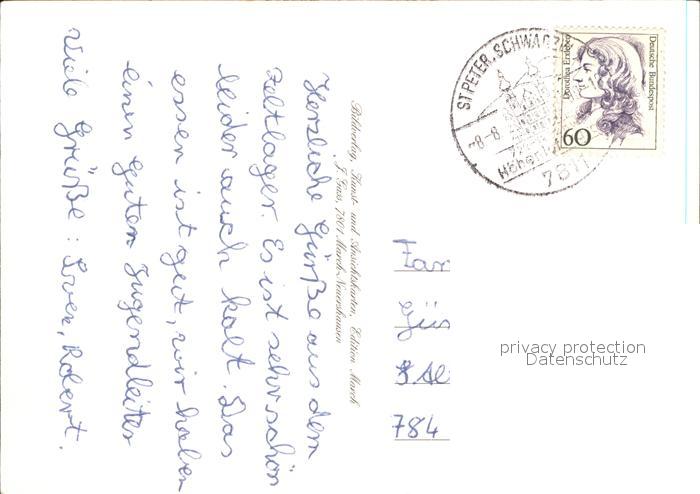 Herzliche Grüße aus dem
Zeltlager. Es ist sehr schön
leider auch kalt. Das
essen ist gut, wir haben
einen guten Jugendleiter
Viele Grüße : Sven, Robert.
Bildverlag, Kunst- und Ansichtskarten, Edition March
7801 March-Neuershausen
ST. PETER, SCHWARZW
-8-8
7811
Deutsche Bundespost
Dorothea Erxleben
60
784
privacy protection
Datenschutz